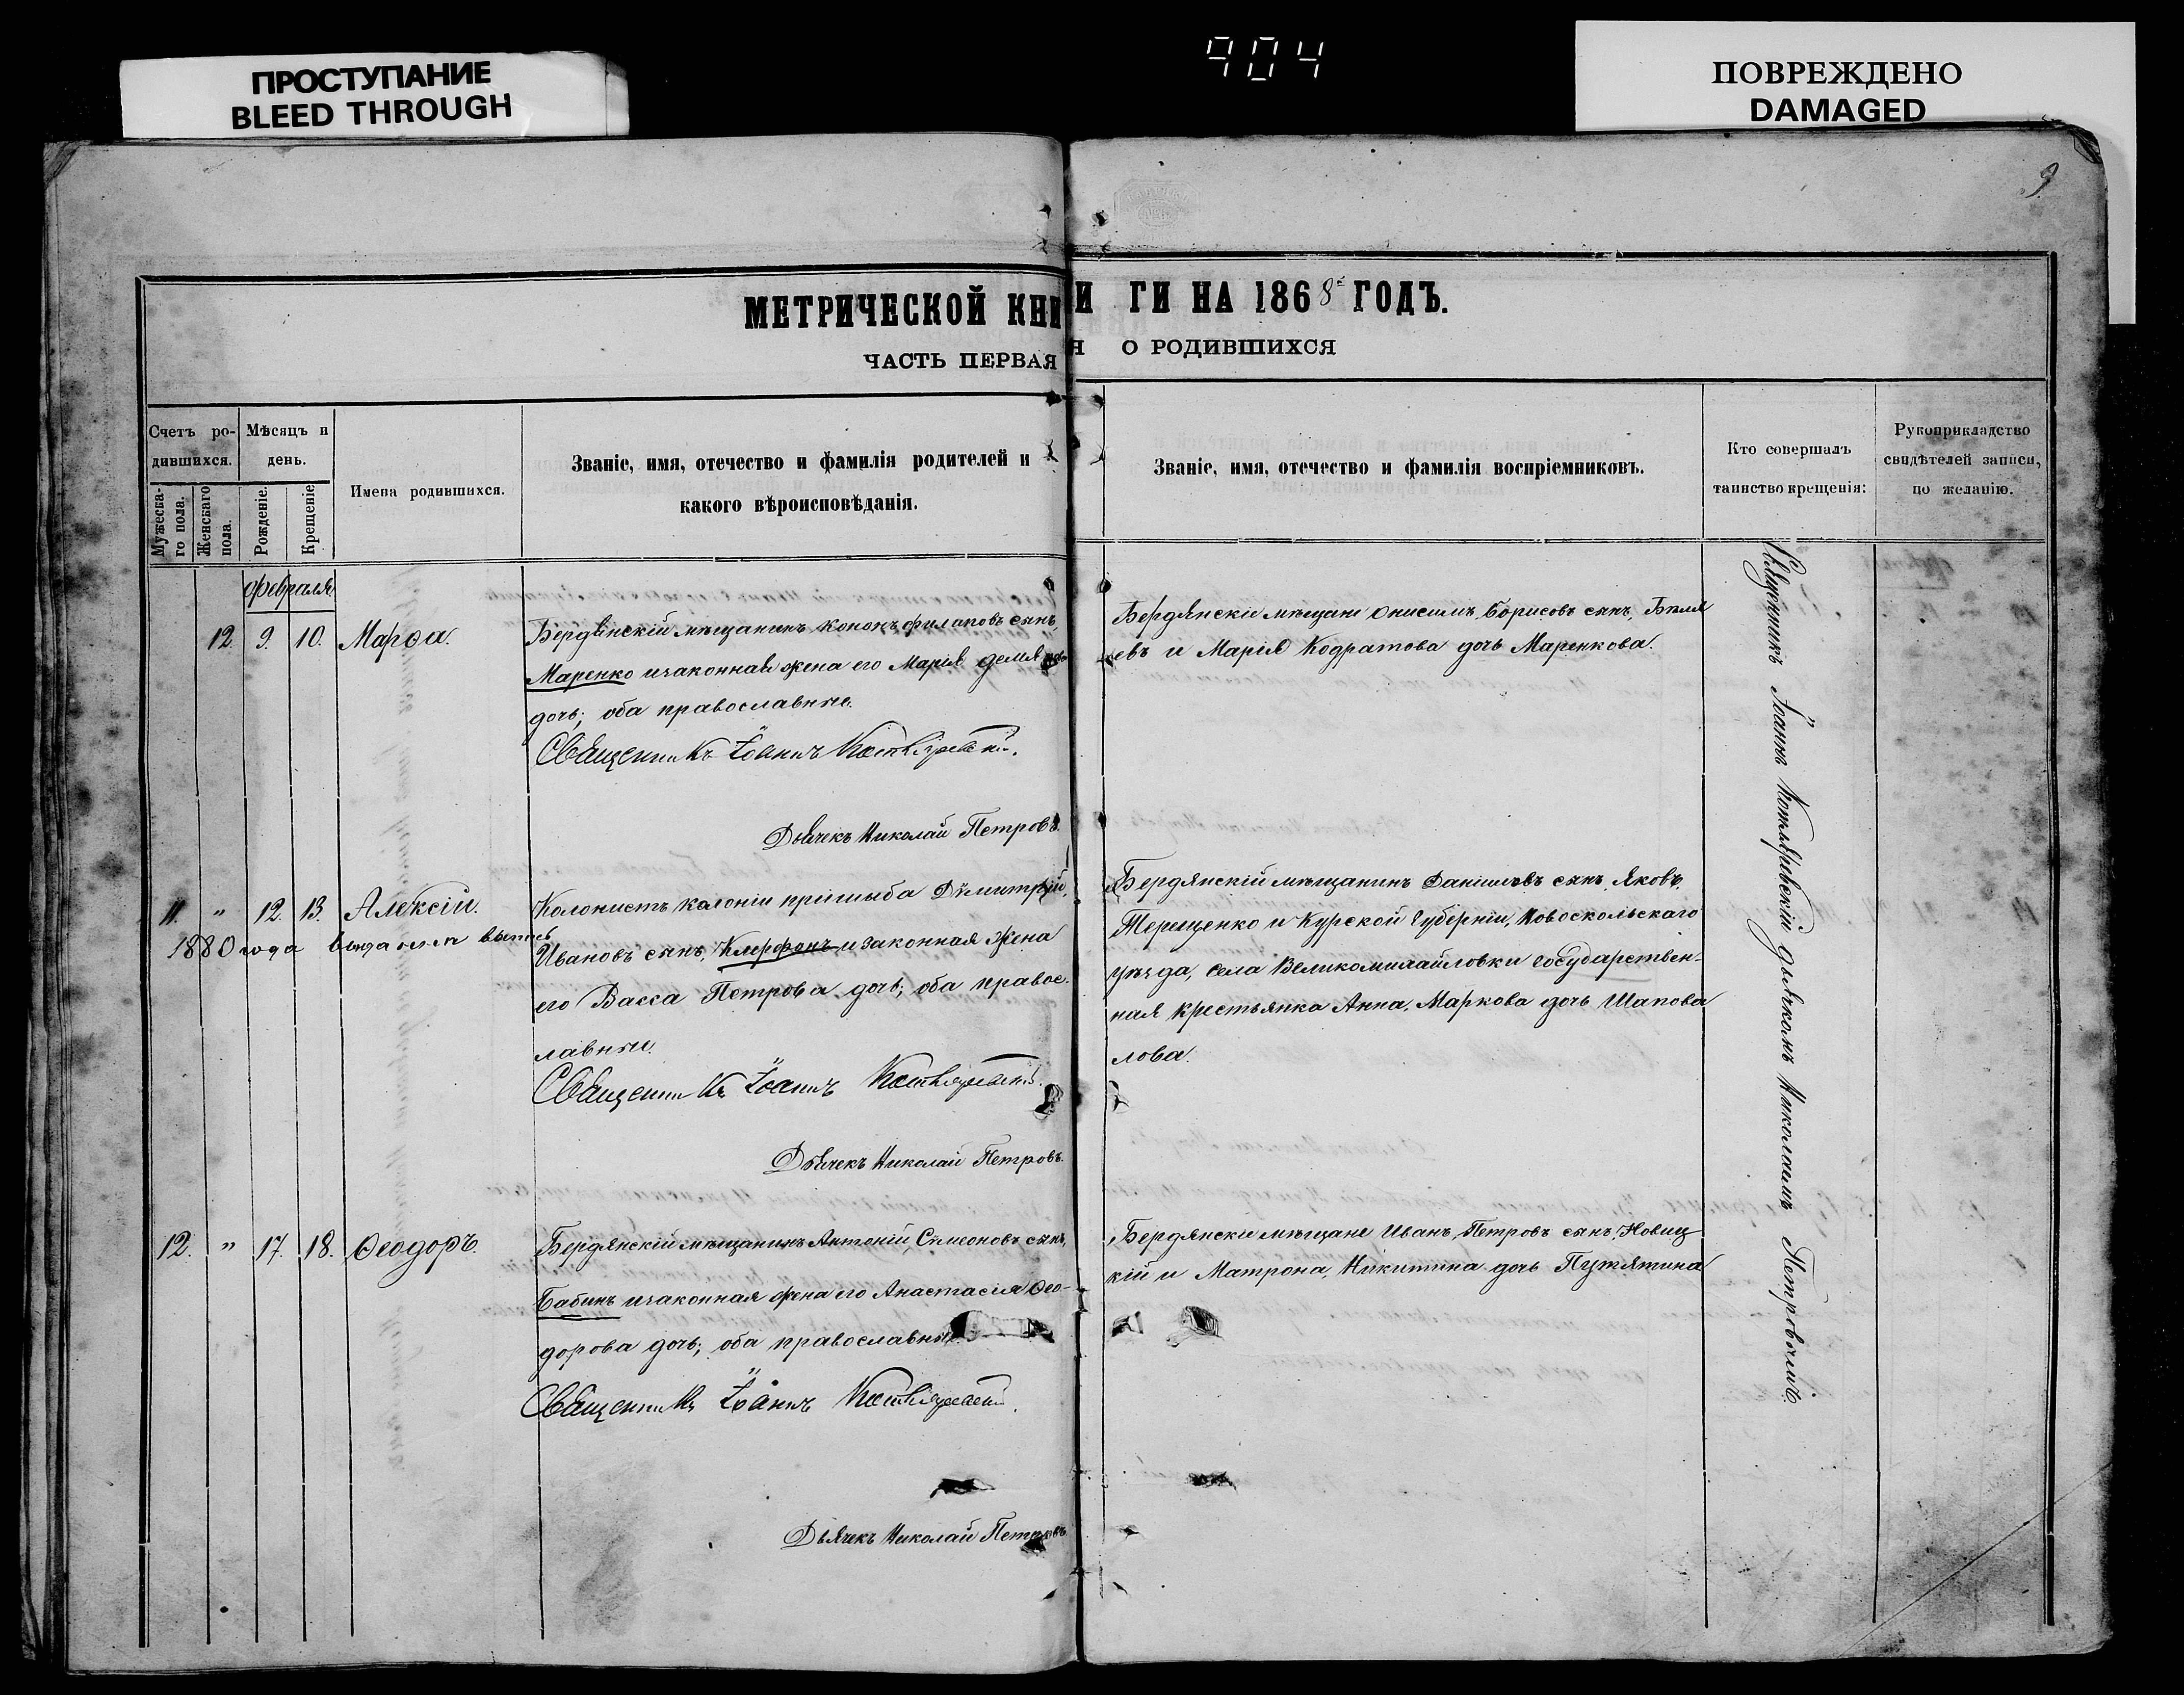 ПРОСТУПАНИЕ
BLEED THROUGH
904
ПОВРЕЖДЕНО
DAMAGED
9.
МЕТРИЧЕСКОЙ КНИ
И ГИ НА 1868 ГОДЪ.
ЧАСТЬ ПЕРВАЯ
Я О РОДИВШИХСЯ
Счетъ ро-
дившихся.
Мужеска-
го пола.
Женскаго
пола.
Мѣсяцъ и
день.
Рожденіе.
Крещеніе
Имена родившихся.
Званіе, имя, отечество и фамилія родителей и
какого вѣроисповѣданія.
Званіе, имя, отечество и фамилія воспріемниковъ.
Кто совершалъ
таинство крещенія:
Рукоприкладство
свидѣтелей записи,
по желанію.
февраля
12. 9. 10. Марѳа.
Бердянскій мѣщанинъ Кононъ, филаповъ сынъ,
Маренко изаконная жена его Марія демья
дочь; оба православные.
Священникъ Іоаннъ Котляревскій.
Дьячекъ Николай Петровъ.
Бердянскіе мѣщане Онисимъ, Борисовъ сынъ, Бѣля
евъ и Марія Кодратова дочь Маренкова.
11. " 12. 13. Алексій.
1880 года выдана выпись
Колонистъ колоніи пришыба Дѵмитрій,
Ивановъ сынъ, и законная жена
его Васса Петрова дочь; оба правос-
лавные.
Священникъ Іоаннъ Котляревскій.
Дьячекъ Николай Петровъ.
Бердянскій мѣщанинъ Даніиловъ сынъ, Яковъ,
Терещенко и Курской Губерніи, Новоскольскаго
уѣзда, села Великомихайловки государствен-
ная крестьянка Анна, Маркова дочь Шапова
лова.
12. " 17. 18. Ѳеодоръ.
Бердянскій мѣщанинъ Антоній, Сѵмеоновъ сынъ,
Бабинъ изаконная жена его Анастасія Ѳео-
дорова дочь; оба православные.
Священникъ Іоаннъ Котляревскій.
Дьячекъ Николай Петровъ
Бердянскіе мѣщане Иванъ, Петровъ сынъ, Новиц
кій и Матрона, Никитина дочь Путятина
Священникъ Іоаннъ Котляревскій дьячкомъ Николаемъ Петровымъ.